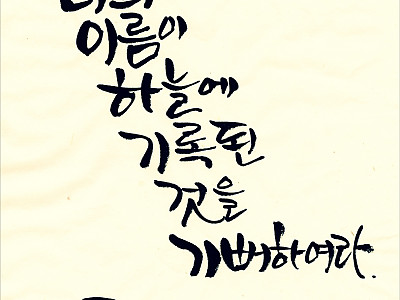 너희
이름이
하늘에
기록된
것을
기뻐하여라.